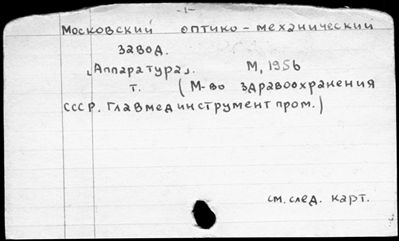 -1-
Московский оптико-механический
завод.
"Аппаратура". М, 1956
т. (М-во здравоохранения
СССР. Главмединструментпром.)
см. след. карт.